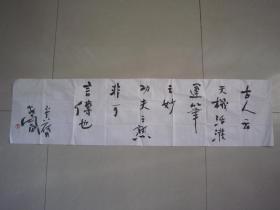 古人云
天機活潑
運筆
之妙
功夫之熟
非可
言傳也